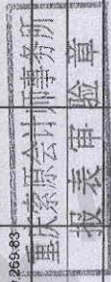 .269-83
重庆 原会计师事务所
报表审验章